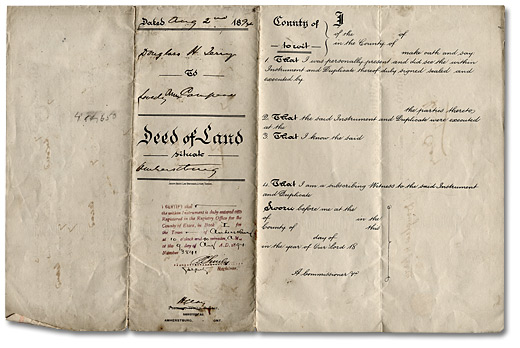 Dated Aug 2nd 18
Douglas H.
To
Company
Deed of Land
situate
Amherstburg
I CERTIFY that
the within Instrument is duly entered and
Registered in the Registry Office for the
County of Essex, in Book I for
the Town of Amherstburg
at 10 o'clock and minutes A.M.
of the 9 day of Aug A.D.
Number
Registrar.
AMHERSTBURG, ONT.
County of
to wit
I
of the of
in the County of
make oath and say
1. That I was personally present and did see the within
Instrument and Duplicate thereof duly signed sealed and
executed by
the parties thereto
2. That the said Instrument and Duplicate were executed
at the
3. That I know the said
4. That I am a subscribing Witness to the said Instrument
and Duplicate
Sworn before me at the
of in the
County of this
day of
in the year of Our Lord 18
A Commissioner &c